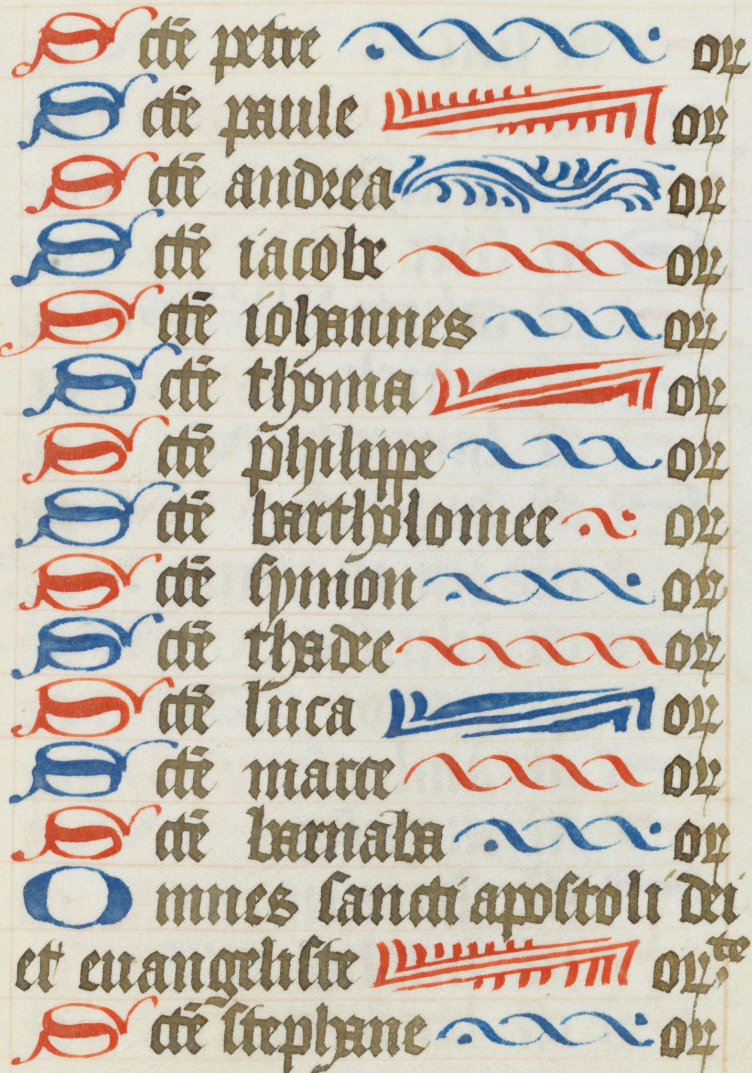 Sctē petre or
Sctē paule or
Sctē andrea or
Sctē iacobe or
Sctē iohannes or
Sctē thoma or
Sctē philippe or
Sctē bartholomee or
Sctē symon or
Sctē thadee or
Sctē luca or
Sctē marce or
Sctē barnaba or
Omnes sancti apostoli dei
et euangeliste orte
Sctē stephane or